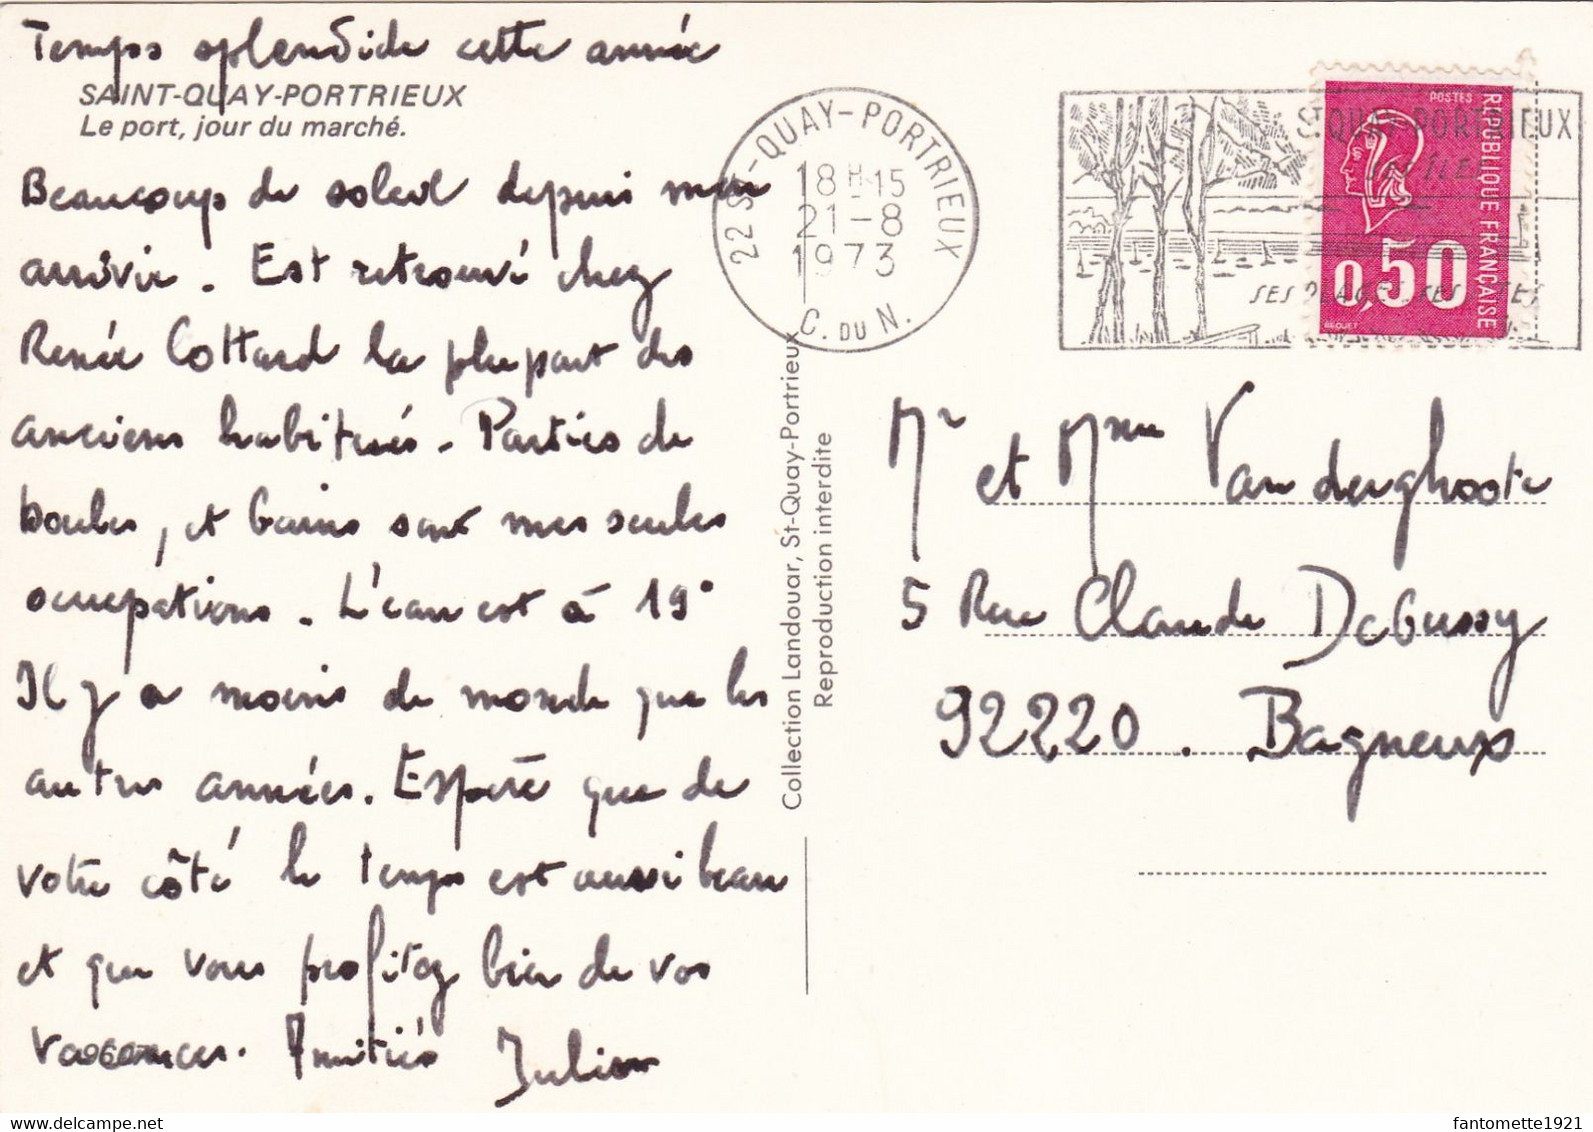 Temps splendide cette année
SAINT-QUAY-PORTRIEUX
Le port, jour du marché.
Beaucoup de soleil depuis mon
arrivée. Est retrouvé chez
Renée Cottard la plupart des
anciens habitués. Parties de
boules, et bains sont mes seules
occupations. L'eau est à 19°
Il y a moins de monde que les
autres années. Espère que de
votre côté le temps est aussi beau
et que vous profitez bien de vos
vacances. Amitiés Julien
Collection Landouar, St-Quay-Portrieux
Reproduction interdite
22 ST-QUAY-PORTRIEUX
18H15
21-8
1973
C. DU N.
ST QUAY PORTRIEUX
SES PLAGES SES
POSTES
REPUBLIQUE FRANÇAISE
0,50
BEQUET
Mr et Mme Vanderghoote
5 Rue Claude Debussy
92220. Bagneux
fantomette1921